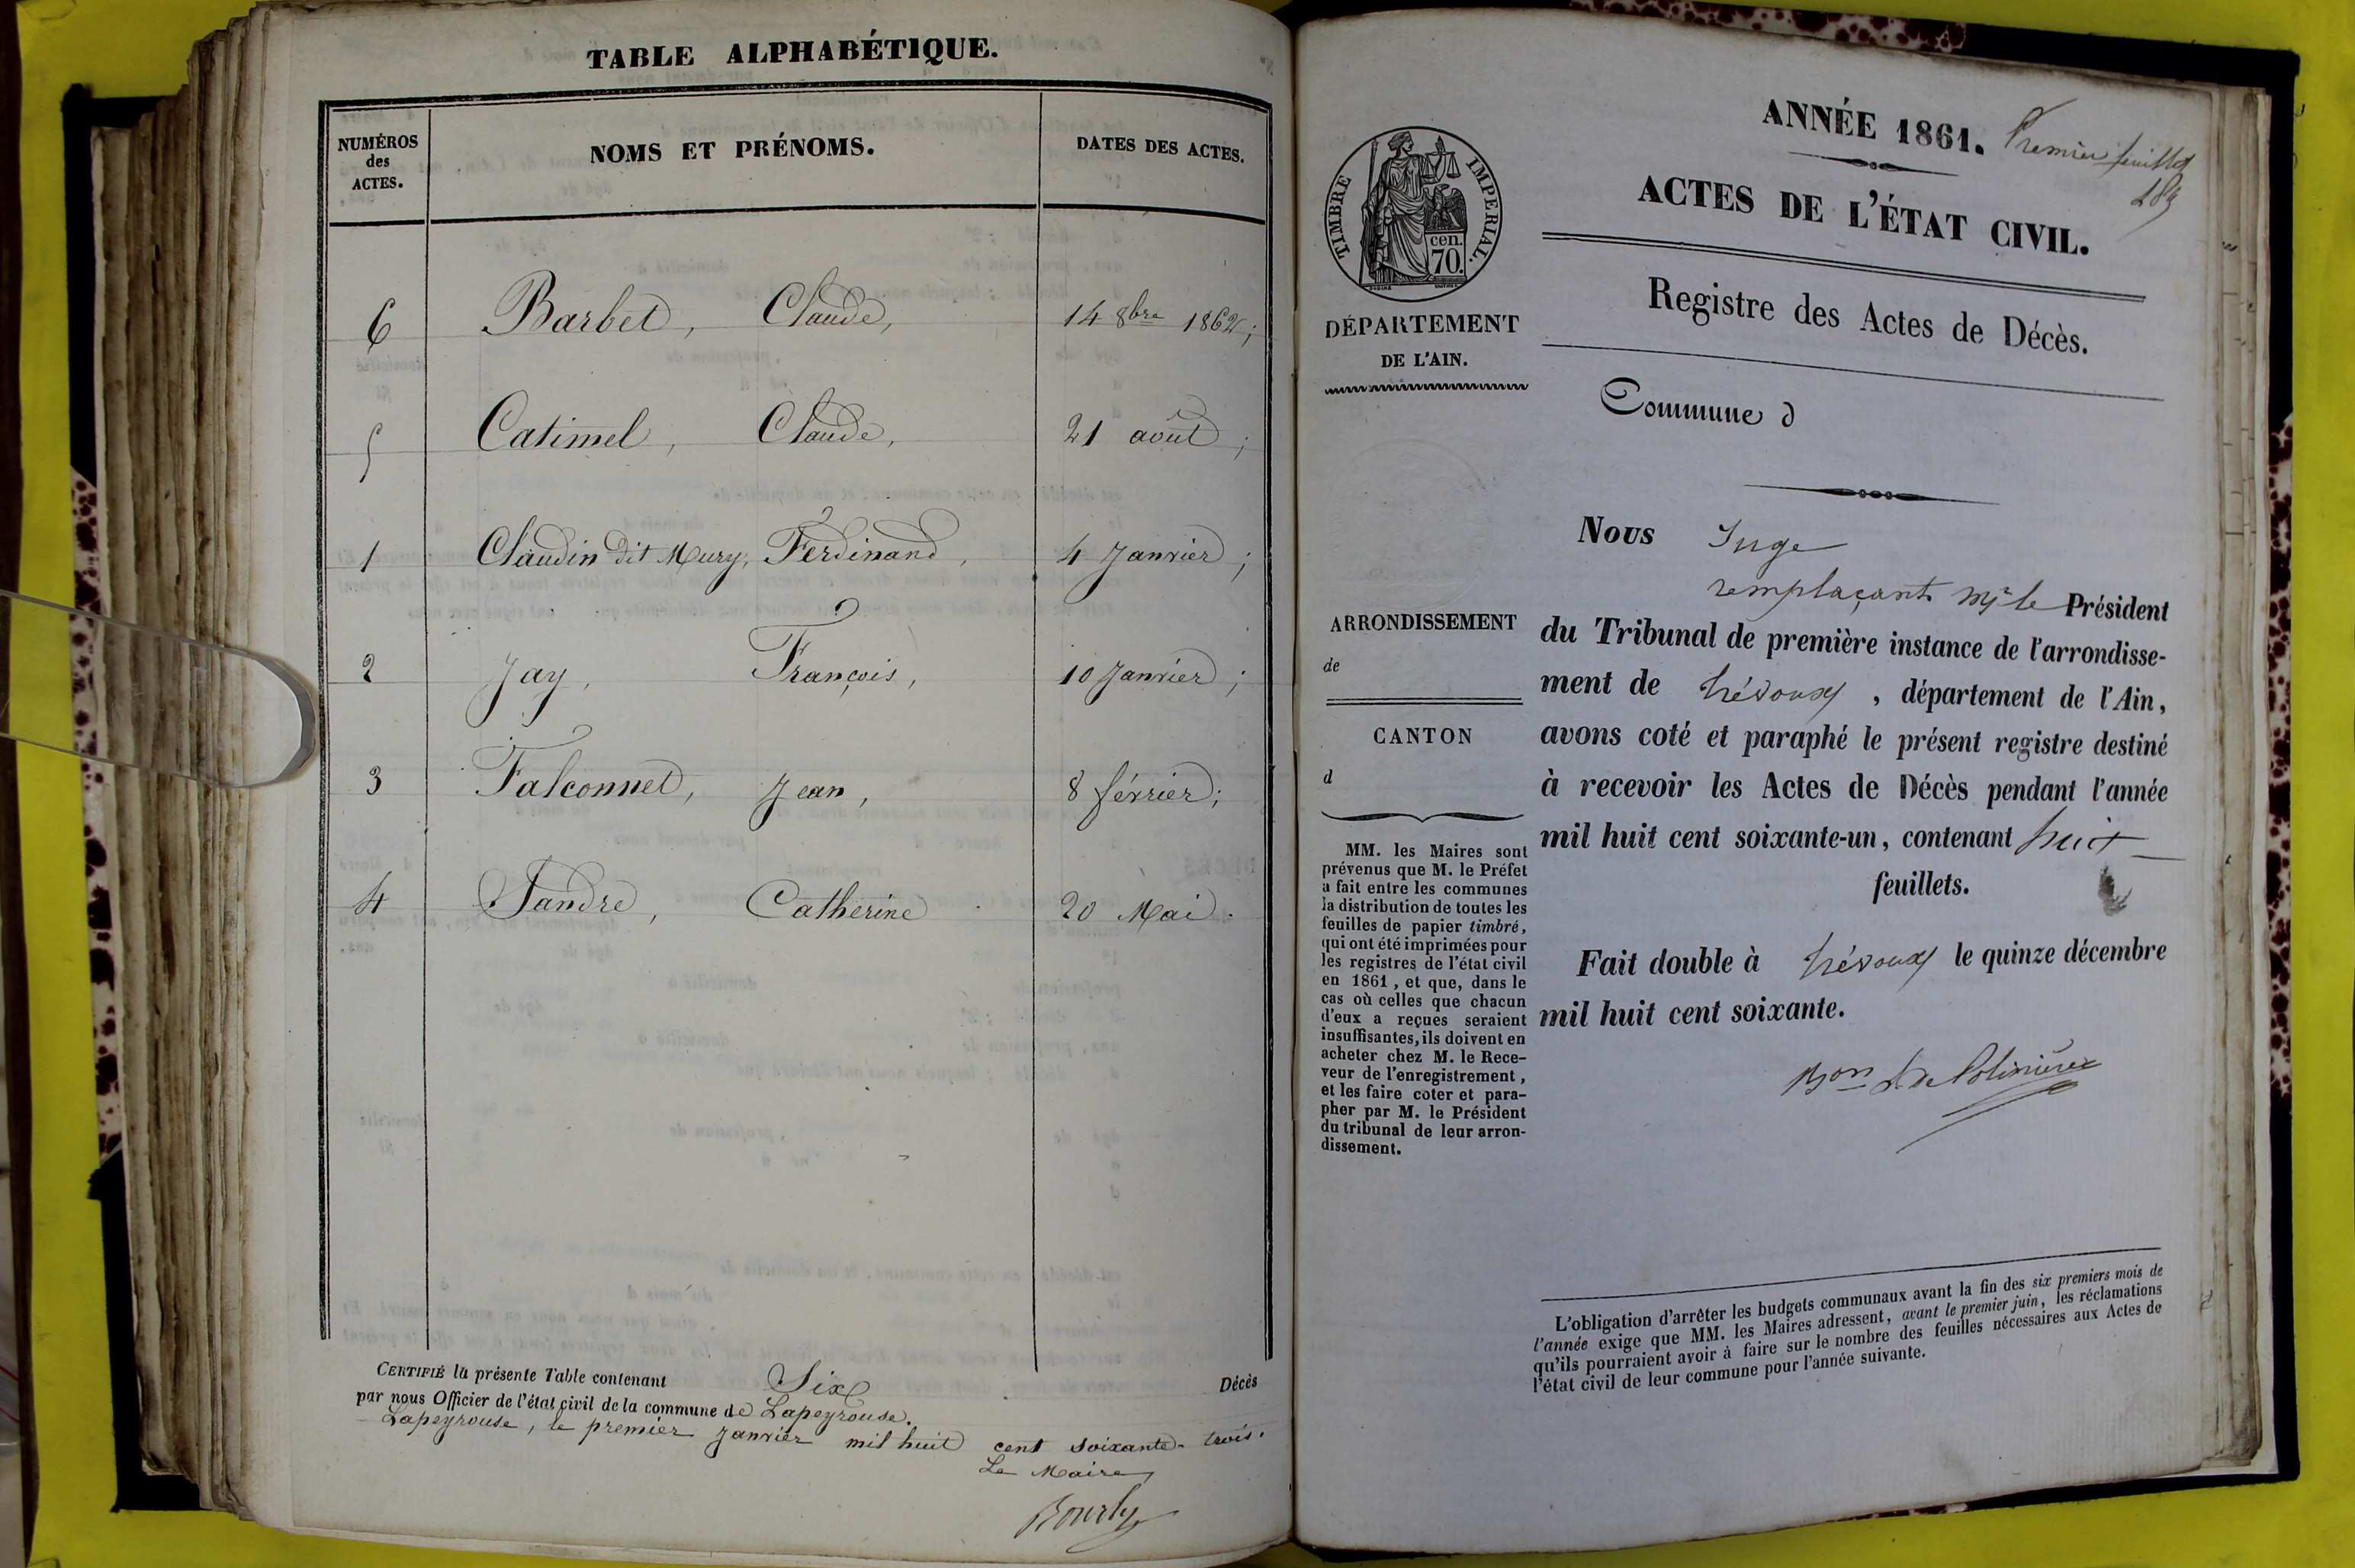 TABLE ALPHABÉTIQUE.
NUMÉROS des ACTES.
NOMS ET PRÉNOMS.
DATES DES ACTES.
6 Barbet, Claude, 14 8bre 1862;
5 Catimel, Claude, 21 août;
1 Claudin dit Mury, Ferdinand, 4 Janvier;
2 Jay, François, 10 Janvier;
3 Falconnet, Jean, 8 février;
4 Sandre, Catherine 20 Mai.
CERTIFIÉ la présente Table contenant Six Décès
par nous Officier de l'état civil de la commune de Lapeyrouse.
Lapeyrouse, le premier Janvier mil huit cent soixante-trois.
Le Maire
Bourly
ANNÉE 1861.
Premier feuillet
ACTES DE L'ÉTAT CIVIL.
Registre des Actes de Décès.
Commune d
TIMBRE IMPERIAL.
cen.
70.
DÉPARTEMENT
DE L'AIN.
ARRONDISSEMENT
de
CANTON
d
MM. les Maires sont
prévenus que M. le Préfet
a fait entre les communes
la distribution de toutes les
feuilles de papier timbré,
qui ont été imprimées pour
les registres de l'état civil
en 1861, et que, dans le
cas où celles que chacun
d'eux a reçues seraient
insuffisantes, ils doivent en
acheter chez M. le Rece-
veur de l'enregistrement,
et les faire coter et para-
pher par M. le Président
du tribunal de leur arron-
dissement.
Nous Juge
remplaçant Mr le Président
du Tribunal de première instance de l'arrondisse-
ment de Trévoux, département de l'Ain,
avons coté et paraphé le présent registre destiné
à recevoir les Actes de Décès pendant l'année
mil huit cent soixante-un, contenant huit
feuillets.
Fait double à Trévoux le quinze décembre
mil huit cent soixante.
Bon de Polinière
L'obligation d'arrêter les budgets communaux avant la fin des six premiers mois de
l'année exige que MM. les Maires adressent, avant le premier juin, les réclamations
qu'ils pourraient avoir à faire sur le nombre des feuilles nécessaires aux Actes de
l'état civil de leur commune pour l'année suivante.